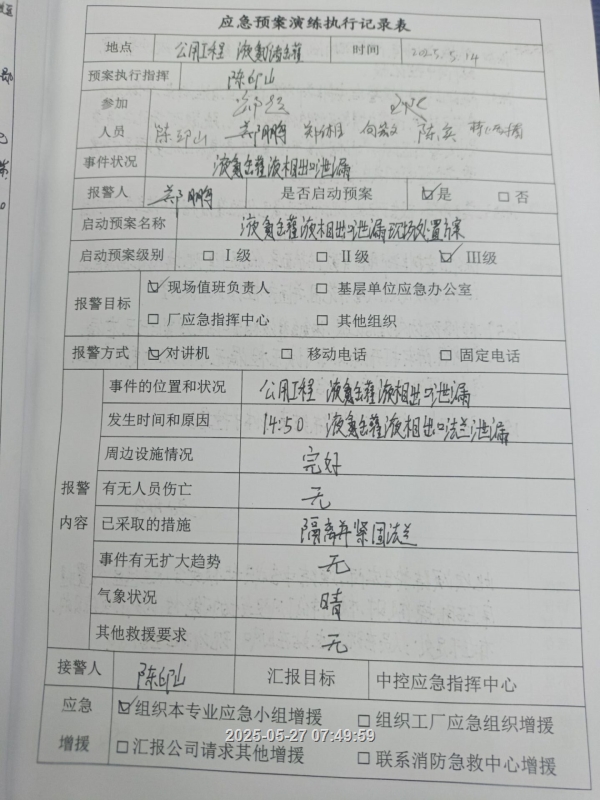 应急预案演练执行记录表
地点 公用工程 液氨储罐 时间 2025.5.14
预案执行指挥 陈印山
参加
人员 陈印山
事件状况 液氨储罐液相出口泄漏
报警人 郑鹏 是否启动预案 ☑是 □否
启动预案名称 液氨储罐液相出口泄漏现场处置方案
启动预案级别 □Ⅰ级 □Ⅱ级 ☑Ⅲ级
报警目标 ☑现场值班负责人 □基层单位应急办公室
□厂应急指挥中心 □其他组织
报警方式 ☑对讲机 □移动电话 □固定电话
报警内容
事件的位置和状况 公用工程 液氨储罐液相出口泄漏
发生时间和原因 14:50 液氨储罐液相出口法兰泄漏
周边设施情况 完好
有无人员伤亡 无
已采取的措施 隔离并紧固法兰
事件有无扩大趋势 无
气象状况 晴
其他救援要求 无
接警人 陈印山 汇报目标 中控应急指挥中心
应急增援 ☑组织本专业应急小组增援 □组织工厂应急组织增援
□汇报公司请求其他增援 □联系消防急救中心增援
2025-05-27 07:49:59